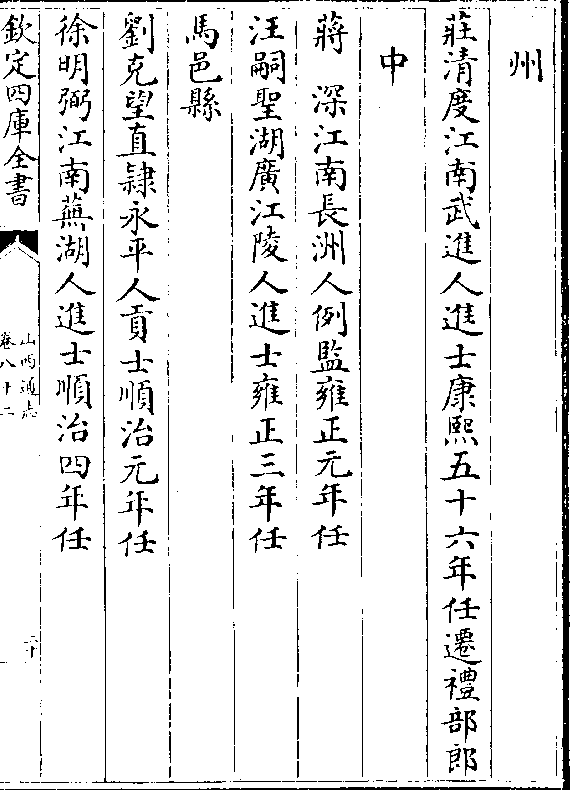 州
莊清度江南武進人進士康熙五十六年任遷禮部郎
中
蔣 深江南長洲人例監雍正元年任
汪嗣聖湖廣江陵人進士雍正三年任
馬邑縣
劉克望直𨽻永平人貢士順治元年任
徐明弼江南蕪湖人進士順治四年任
欽定四庫全書
山西通志
卷八十二